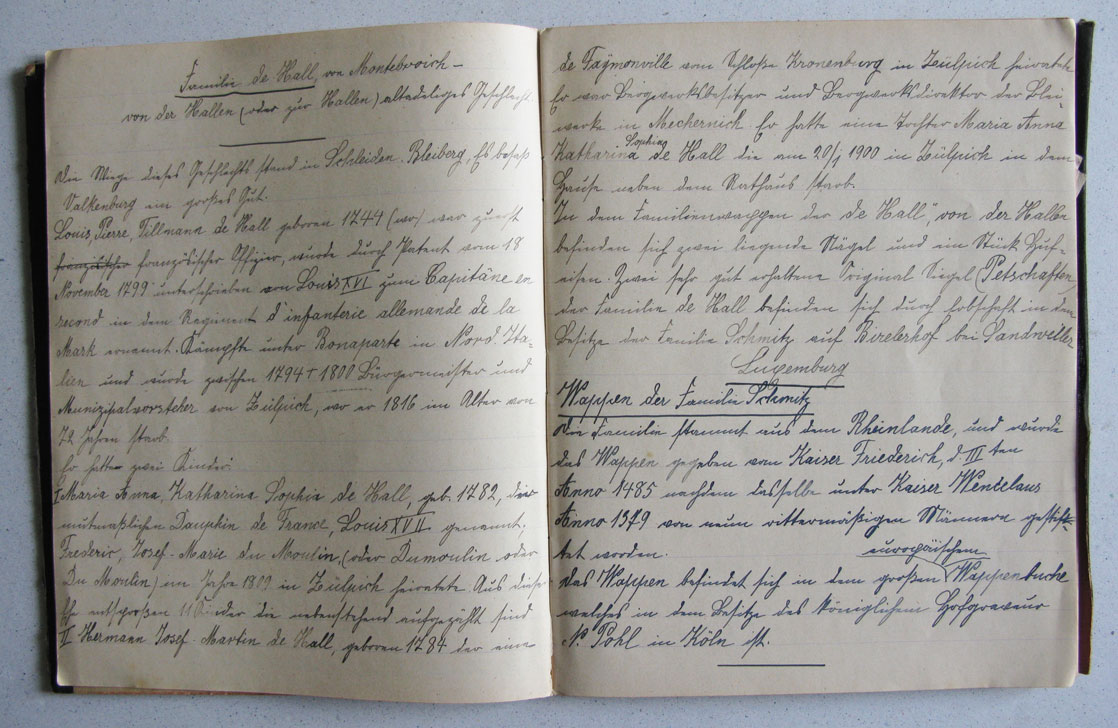 Familie de Hall, von Montebroich –
von der Hallen (oder zur Hallen) altadeliges Geschlecht.
Die Wiege dieses Geschlechts stand in Schleiden. Bleiberg, Es besaß
Valkenburg ein großes Gut.
Louis, Pierre, Tillmann de Hall geboren 1744 (wo) war zuerst
französischer französischer Offizier, wurde durch Patent vom 18
November 1799 unterschrieben von Louis XVI zum Capitäne en
second in dem Regiment d'infanterie allemande de la
Mark ernannt. Kämpfte unter Bonaparte in Nord. Ita-
lien und wurde zwischen 1794 + 1800 Bürgermeister und
Munizipalvorsteher von Zülpich, wo er 1816 im Alter von
72 Jahren starb.
Er hatte zwei Kinder:
I Maria Anna, Katharina Sophia de Hall, geb. 1782, die
mutmaßlichen Dauphin de France, Louis XVII genannt,
Frederic, Josef-Marie du Moulin, (oder Dumoulin oder
Du Moulin) im Jahre 1809 in Zülpich heiratete. Aus dieser
Ehe entsproßen 11 Kinder die nebenstehend aufgezählt sind
II Hermann Josef-Martin de Hall, geboren 1784 der eine
de Taymonville vom Schloße Kronenburg in Zülpich heiratete
Er war Bergwerksbesitzer und Bergwerksdirektor der Blei-
werke in Mechernich. Er hatte eine Tochter Maria Anna
Katharina Sophia de Hall die am 20/1 1900 in Zülpich in dem
Hause neben dem Rathaus starb.
In dem Familienwappen der de Hall", von der Hallen
befinden sich zwei liegende Nägel und ein Stück Huf-
eisen. Zwei sehr gut erhaltene Original Siegel (Petschaften
der Familie de Hall befinden sich durch Erbschaft in dem
Besitze der Familie Schmitz auf Birelerhof bei Sandweiler
Luxemburg
Wappen der Familie Schmitz
Die Familie stammt aus dem Rheinlande, und wurde
das Wappen gegeben vom Kaiser Friederich, d. III ten
Anno 1485 nachdem dasselbe unter Kaiser Wencelaus
Anno 1379 von neun rittermäßigen Männern gestif-
tet worden.
Das Wappen befindet sich in dem großen europäischem Wappenbuche
welches in dem Besitze des königlichem Hofgraveur
N. Pohl in Köln ist.